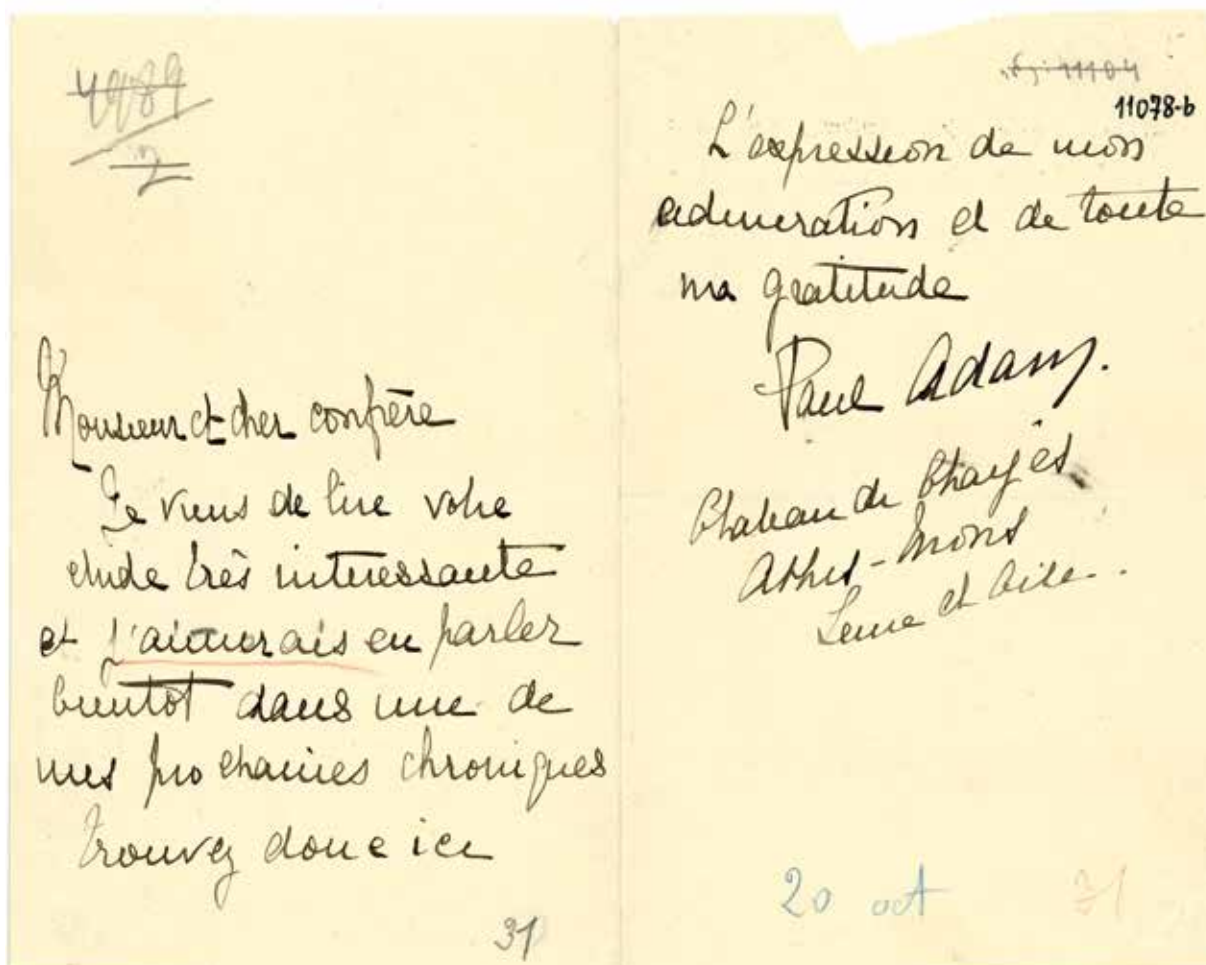 4989
2
Monsieur et cher confrère
Je viens de lire votre
etude très interessante
et j'aimerais en parler
bientôt dans une de
mes prochaines chroniques
Trouvez donc ici
31
11104
11078-b
L'expression de mon
admiration et de toute
ma gratitude
Paul Adam.
Chateau de Chaiges
Athis-Mons
Seine et Oise.
20 oct
31